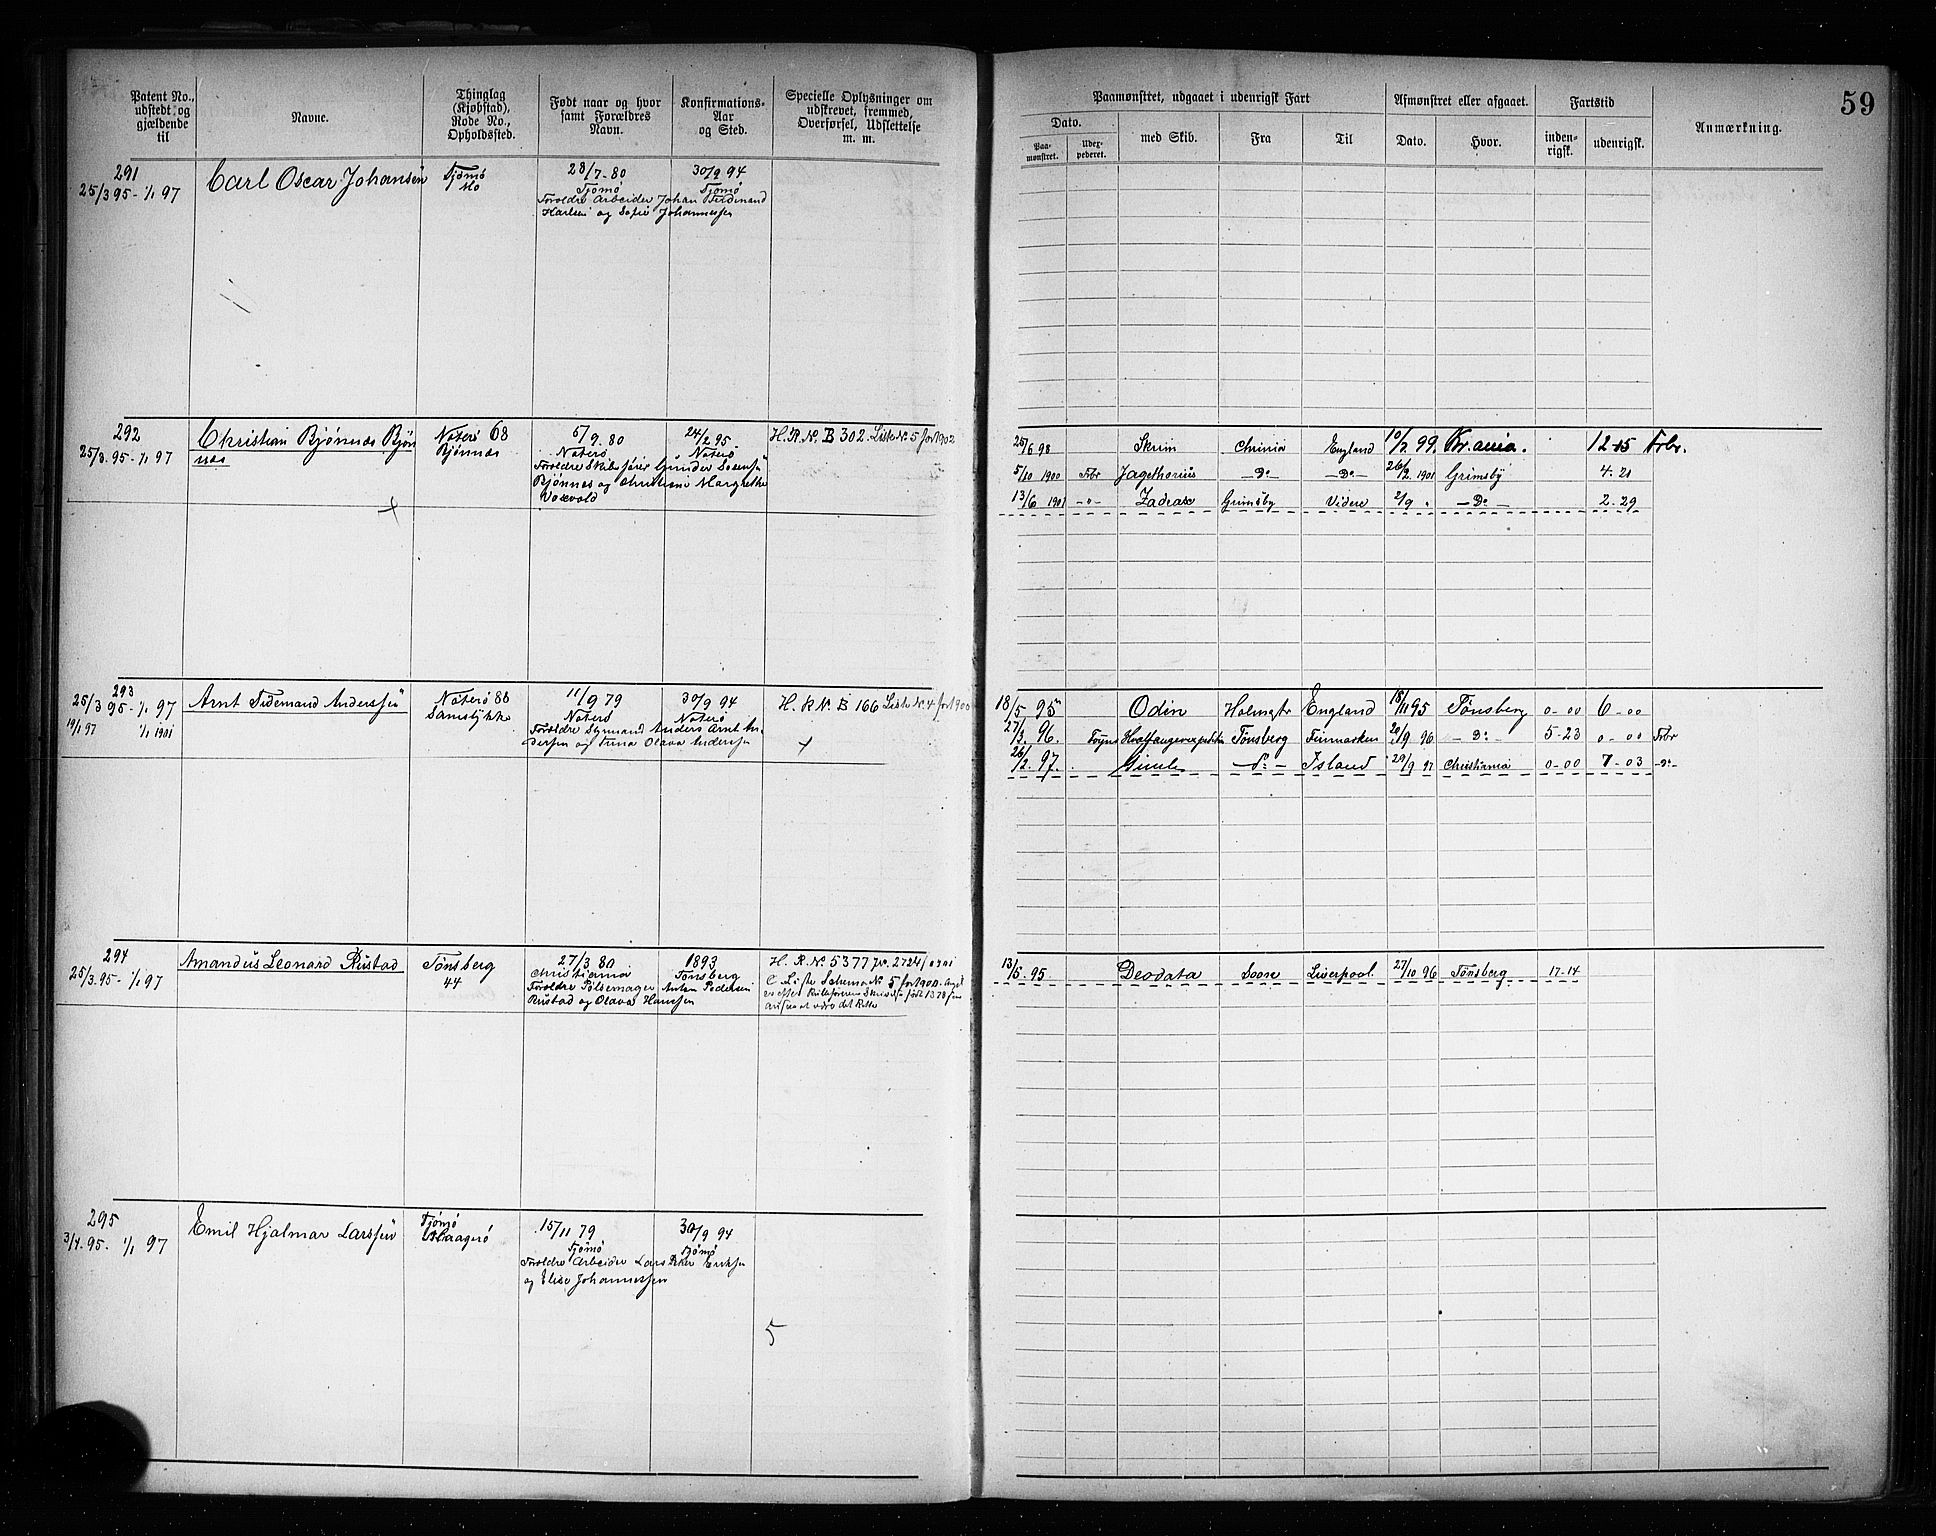 59
Patent No., udstedt og gjældende til
Navne.
Thinglag (Kjøbstad), Rode No., Opholdssted.
Født naar og hvor samt Forældres Navn.
Konfirmations- Aar og Sted.
Specielle Oplysninger om udskrevet, fremmed, Overførsel, Udslettelse m. m.
Paamønstret, udgaaet i udenrigsk Fart
Dato.
Paa- mønstret.
Udex- pederet.
med Skib.
Fra
Til
Afmønstret eller afgaaet.
Dato.
Hvor.
Fartstid
inden- rigsk.
udenrigsk.
Anmærkning.
291
25/3 95 - 1/1 97
Carl Oscar Johansen
Tjømø
Mo
28/7 - 80
Tjømø
30/9 94
Tjømø
Foreldre Arbeider Johan Ferdinand
Karlsen og Sofie Johannessen
292
25/3. 95 - 1/1 97
Christian Bjønnæs Bjøn
næs
Nøterø 68
Bjønnæs
5/9. 80
Nøterø
24/2 95
Nøterø
Foreldre Skibsfører Gunder
Bjønnes og Christine Margrethe
H. R. No. B 302. Liste No. 5 for 1902
25/6 98 Skrim Chrinia England 10/2 99. Kr.ania. 12-15 Frbr.
5/10 1900 Frbr — Do — — Do — 26/2. 1901 Grimsby 4. 21
13/6 1901 - " - Grimsby Videre 2/9 " — Do — 2. 29
293
25/3 95 - 1/1 97
19/1 97 1/1 1901
Arnt Tidemand Anderssen
Nøterø 88
11/9 79
Nøterø
30/9 94
Nøterø
Foreldre Styrmand Anders Arnt An-
dersen og Trina Olava Anderssen
H. R No. B 166 Liste No. 4 for 1900
18/5 95 Odin Holmestr England 18/11 95 Tønsberg 0-00 6-00
27/3. 96. Foyns Hvalfangerexpedition Tønsberg Finmarken 20/9 96 — Do — 5-23 0-00 Frbr
26/2. 97. Gimle — Do — Island 29/9 97 Christiania 0-00 7-03 - Do -
294
25/3. 95 - 1/1 97
Amandus Leonard Rustad
Tønsberg
44
27/3 80
Christiania
1893
Tønsberg
Foreldre Pølsemager Anton Pedersen
Rustad og Olava Hanssen
H. R. No. 5377
13/5. 95. Deodata Liverpool. 27/10 96 Tønsberg 17-14
295
3/4. 95. 1/1 97
Emil Hjalmar Larssen
Tjømø
15/11 79
Tjømø
30/9 94
Tjømø
Foreldre Arbeider Lars Peter Eriksen
og Elise Johannessen
5